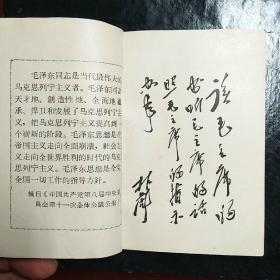 毛泽东同志是当代最伟大的
马克思列宁主义者。毛泽东同志
天才地、创造性地、全面地继
承、捍卫和发展了马克思列宁主
义，把马克思列宁主义提高到一
个崭新的阶段。毛泽东思想是在
帝国主义走向全面崩溃，社会主
义走向全世界胜利的时代的马克
思列宁主义。毛泽东思想是全党
全国一切工作的指导方针。
摘自《中国共产党第八届中央委
员会第十一次全体会议公报》
读毛主席的
书听毛主席的话
照毛主席的指示
办事
林彪